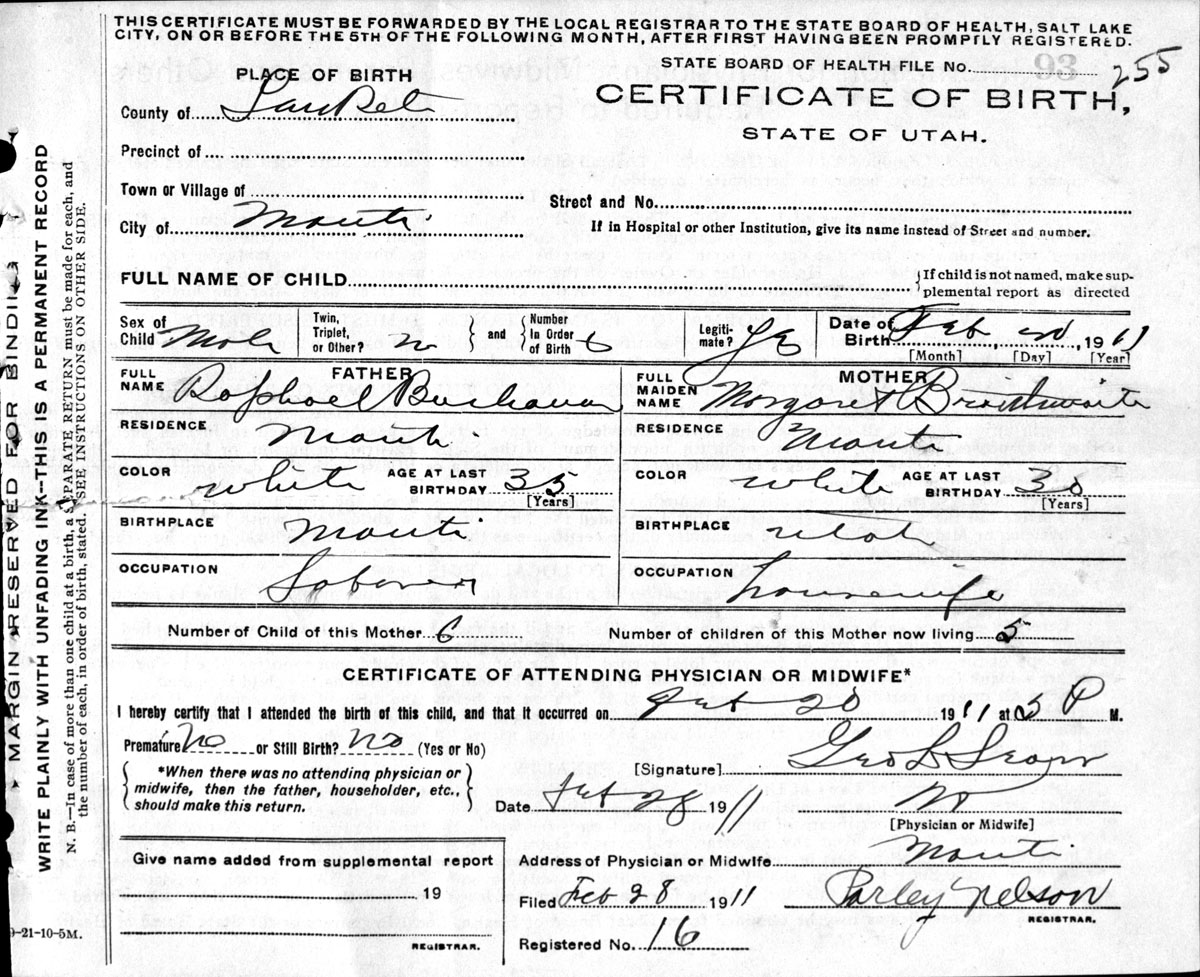 THIS CERTIFICATE MUST BE FORWARDED BY THE LOCAL REGISTRAR TO THE STATE BOARD OF HEALTH, SALT LAKE
CITY, ON OR BEFORE THE 5TH OF THE FOLLOWING MONTH, AFTER FIRST HAVING BEEN PROMPTLY REGISTERED.
STATE BOARD OF HEALTH FILE No. 255
CERTIFICATE OF BIRTH,
STATE OF UTAH.
PLACE OF BIRTH
County of SanPete
Precinct of
Town or Village of
City of Manti
Street and No.
If in Hospital or other Institution, give its name instead of Street and number.
FULL NAME OF CHILD
{If child is not named, make sup-
plemental report as directed
Sex of Child Male
Twin, Triplet, or Other? } and { Number In Order of Birth 6
Legiti-mate? Yes
Date of Birth Feb , 1911
[Month] [Day] [Year]
FATHER
FULL NAME Raphael Buchanan
RESIDENCE Manti
COLOR white AGE AT LAST BIRTHDAY 33 [Years]
BIRTHPLACE Manti
OCCUPATION Laborer
MOTHER
FULL MAIDEN NAME Margaret Braithwaite
RESIDENCE Manti
COLOR white AGE AT LAST BIRTHDAY [Years]
BIRTHPLACE Utah
OCCUPATION Housewife
Number of Child of this Mother 6 Number of children of this Mother now living 5
CERTIFICATE OF ATTENDING PHYSICIAN OR MIDWIFE*
I hereby certify that I attended the birth of this child, and that it occurred on Feb 20 1911 at 3 P M.
Premature No or Still Birth? No (Yes or No)
*When there was no attending physician or
midwife, then the father, householder, etc.,
should make this return.
[Signature] Geo L Sears
Date Feb 28 1911
[Physician or Midwife]
Give name added from supplemental report
19
REGISTRAR.
Address of Physician or Midwife Manti
Filed Feb 28 1911 Parley Nelson
REGISTRAR.
Registered No. 16
9-21-10-5M.
MARGIN RESERVED FOR BINDING
WRITE PLAINLY WITH UNFADING INK—THIS IS A PERMANENT RECORD
N. B.—In case of more than one child at a birth, a SEPARATE RETURN must be made for each, and
the number of each, in order of birth, stated. SEE INSTRUCTIONS ON OTHER SIDE.